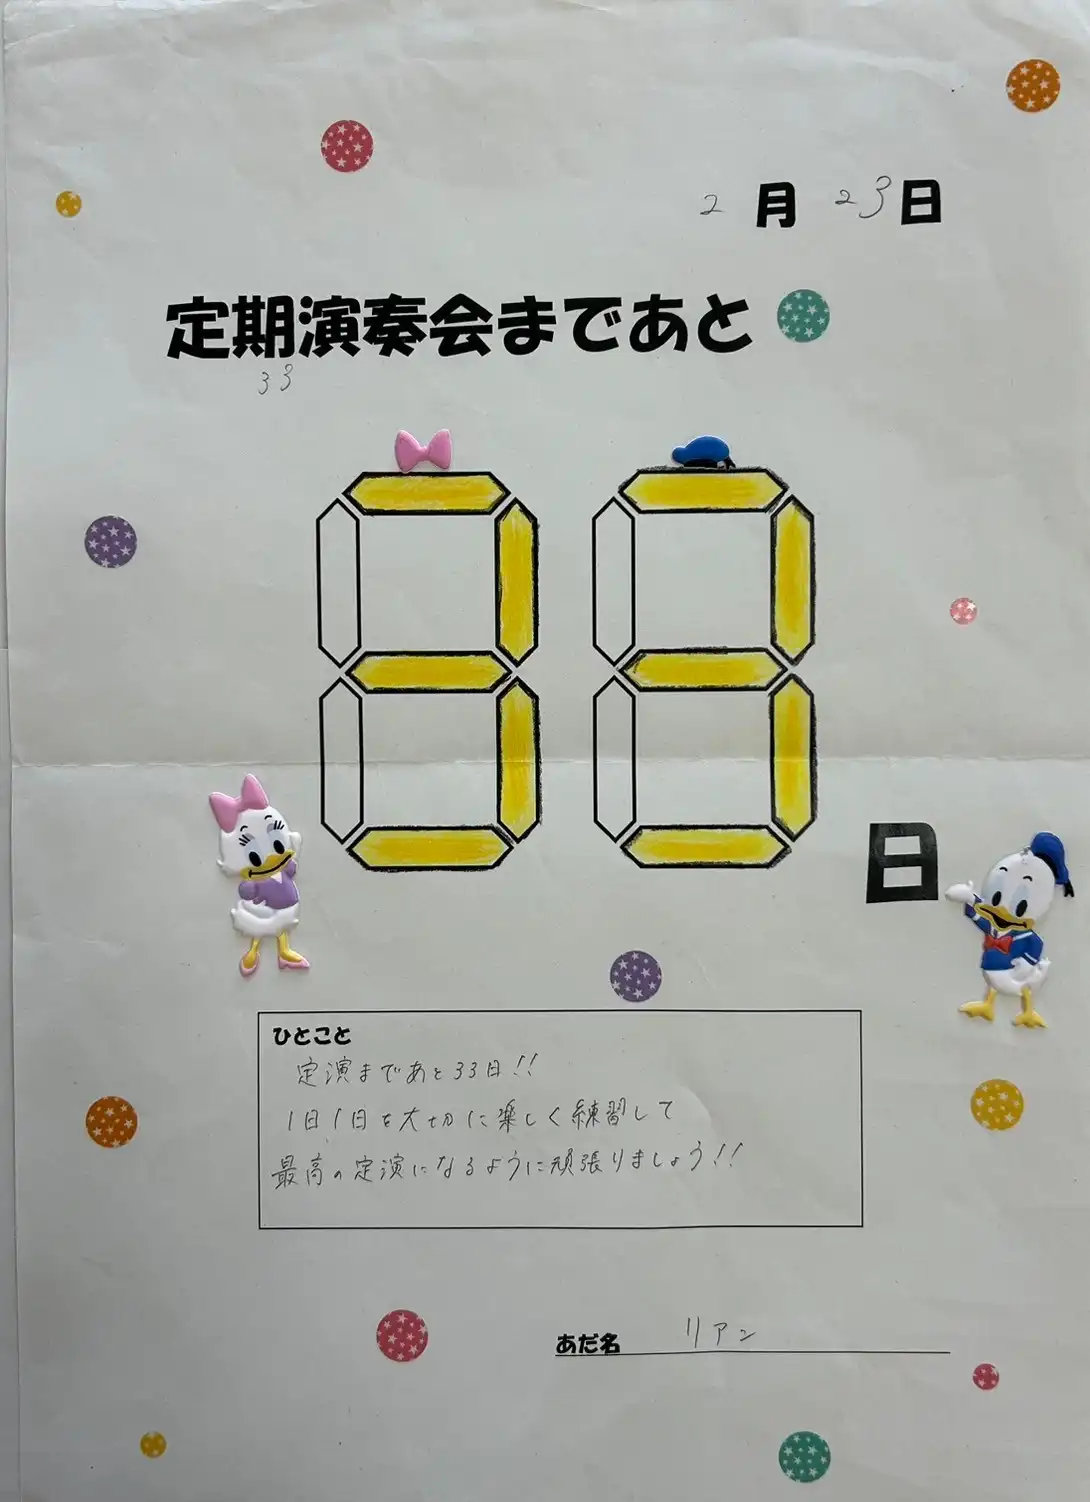 2月23日
定期演奏会まであと
33
33
日
ひとこと
定演まであと33日!!
1日1日を大切に楽しく練習して
最高の定演になるように頑張りましょう!!
あだ名 リアン